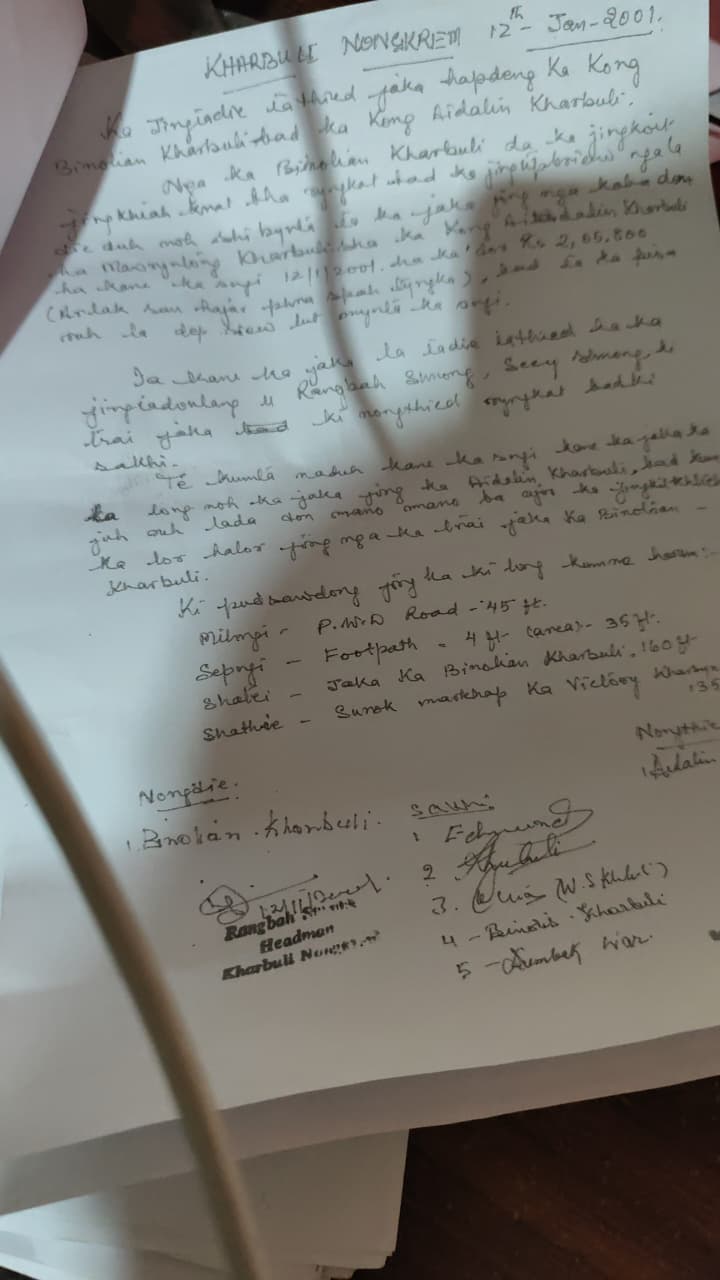 KHARBULI NONGKREM 12th - Jan - 2001.
Ka Jingiadie iathied jaka hapdeng Ka Kong
Binolian Kharbuli bad ka Kong Aidalin Kharbuli.
Nga ka Binolian Kharbuli da ka jingkoit
jingkhiah kmat kha synrkat bad ka
die duh noh shi bynta ia ka jaka jing nga kaba don
ha Mawnynlong Kharbuli sha ka Kong Aidalin Kharbuli
ha kane ka sngi 12/1/2001. ha ka dor Rs 2,05,800
(Arlak san hajar phra spah tyngka), bad ia ka pisa
ruh la dep siew lut mynta ka sngi.
Ia kane ka jaka la iadie iathied ha ka
jingiadonlang u Rangbah Shnong, Secy Shnong, ki
trai jaka ki nongthied ryngkat bad ki
sakhi.
Te kumta naduh kane ka sngi kane ka jaka ka
la long noh ka jaka jong ka Aidalin Kharbuli, bad kum
juh ruh lada don mano mano ba ka
ka lor halor jong nga ka trai jaka Ka Binolian -
Kharbuli.
Ki pud sawdong jong ka ki long kumne harum :-
Mihngi - P.W.D Road - 45 ft.
Sepngi - Footpath = 4 ft - (area) - 35 ft.
Shatei - Jaka Ka Binolian Kharbuli. 160 ft
Shathie - Surok markhap Ka Victory
135
Nongdie.
1. Binolian. Kharbuli.
Nongthie
1. Aidalin
Sakhi
1 Edmund
2. Kharbuli
3. (W.S Khbuli)
4 - Beinoris. Kharbuli
5 - War.
Rangbah Shnong
Headman
Kharbuli Nongkrem